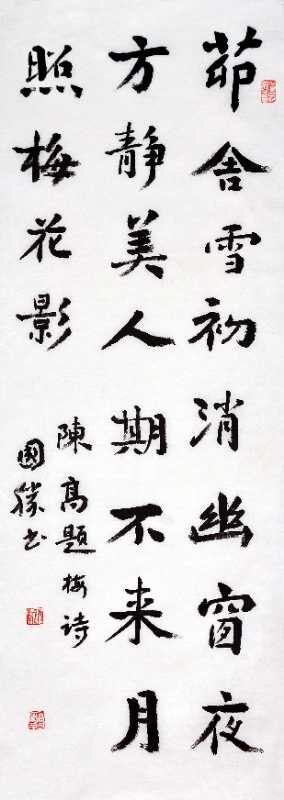 茆舍雪初消幽窗夜
方静美人期不来月
照梅花影
陳高题梅诗
國勝书